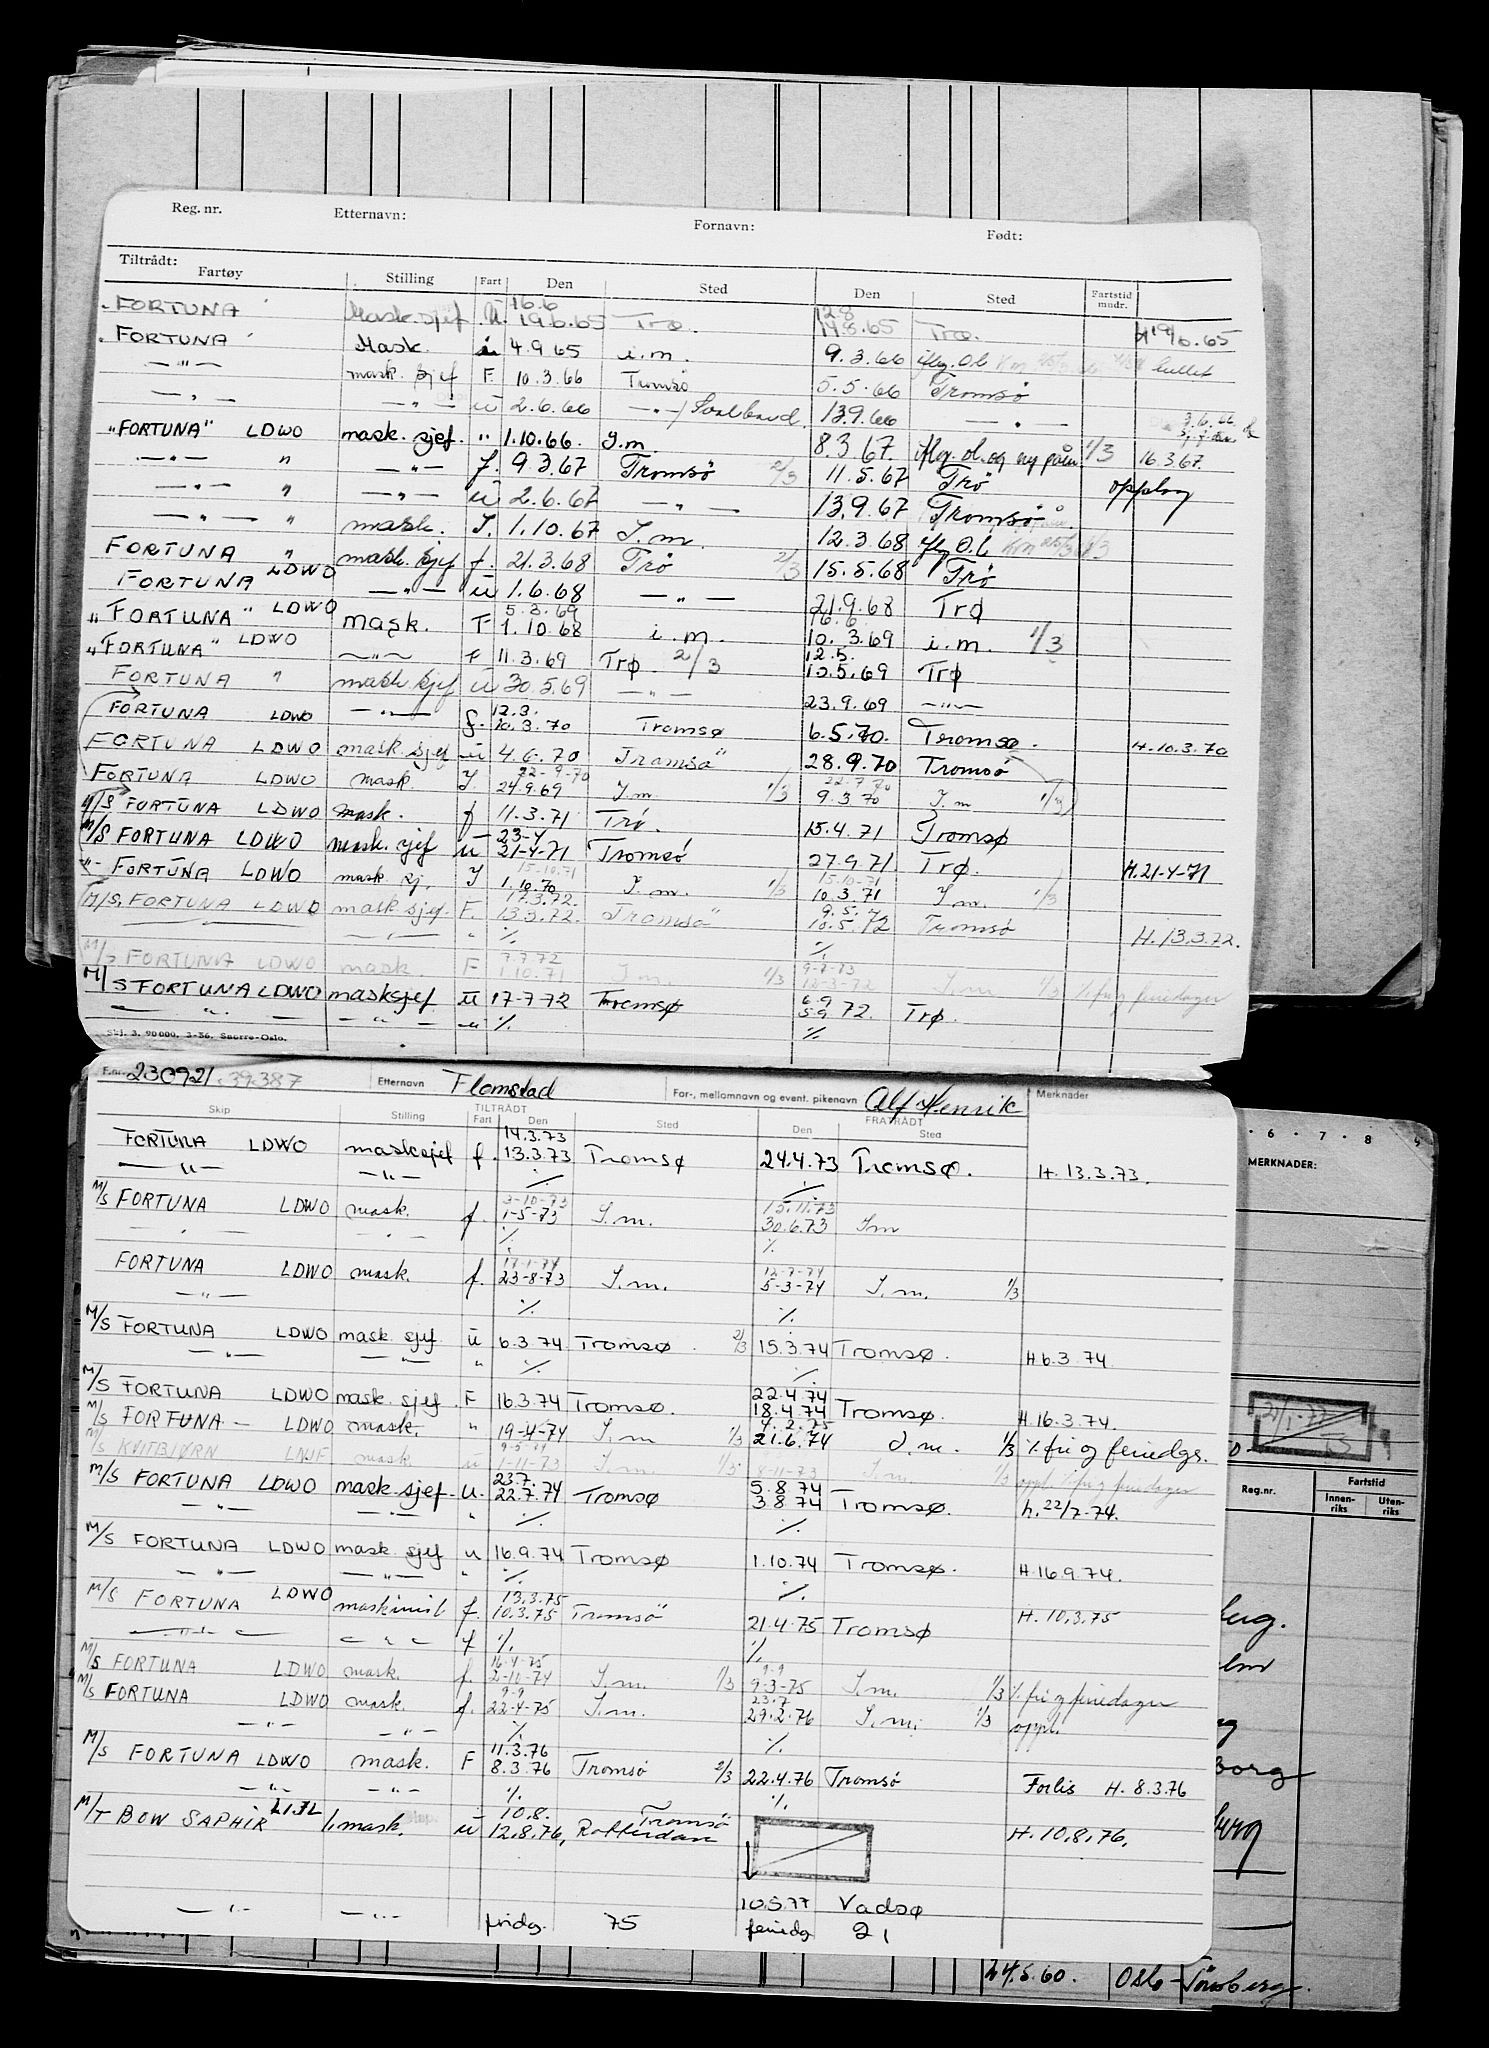 Reg. nr. Etternavn: Fornavn: Født:
Tiltrådt:
Fartøy Stilling Fart Den Sted Den Sted Fartstid mndr.
16.6 12.8
FORTUNA Mask.sjef u. 19.6.65 Trø. 14.8.65 Trø. H 19/6.65
FORTUNA Mask. 4.9.65 i.m. 9.3.66 iflg. O.b
— " — mask. sjef F. 10.3.66 Tromsø 5.5.66 Tromsø
— " — — " — u 2.6.66 — " — 13.9.66 — " —
"FORTUNA" LDWO mask. sjef. " 1.10.66. I.m 8.3.67. 1/3 16.3.67.
— " — " — " — f. 9.3.67 Tromsö 2/3 11.5.67 Trö opplag
— " — " — " — u 2.6.67 — " — 13.9.67 Tromsö
— " — " mask. I. 1.10.67 I.m. 12.3.68 iflg O.b
FORTUNA " mask. sjef f. 21.3.68 Trö 2/3 15.5.68 Trö
FORTUNA LDWO — " — u 1.6.68 — " — 21.9.68 Trø
5.3.69 16.6
"FORTUNA" LDWO mask. 1.10.68 i.m. 10.3.69 i.m. 1/3
12.5.
"FORTUNA" LDWO — " — f 11.3.69 Trø. 2/3 13.5.69 Trø
FORTUNA " mask. sjef u 30.5.69 — " — 23.9.69 — " —
12.3.
FORTUNA LDWO — " — f. 10.3.70 Tromsø 6.5.70. Tromsø. H. 10.3.70
FORTUNA LDWO mask. sjef u 4.6.70 Tromsö 28.9.70 Tromsö
22-9-70 22.7.70
FORTUNA LDWO mask. I. 24.9.69 I.m. 1/3 9.3.70 I.m 1/3
M/S FORTUNA LDWO mask. f 11.3.71 Trö. 15.4.71 Tromsø
23-4
M/S FORTUNA LDWO mask. sjef u 21-4-71 Tromsö 27.9.71 Trø. H. 21-4-71
15.10.71 15.10.71
" FORTUNA LDWO mask. sj. I 1.10.70 I.m. 1/3 10.3.71 I.m. 1/3
17.3.72. 9.5.
M/S. FORTUNA LDWO mask sjef. F. 13.3.72. Tromsö 10.5.72 Tromsö H. 13.3.72.
— " — " % %
7.7.72 9-7-73
M/S FORTUNA LDWO mask. F 1.10.71 I.m. 1/3 12-3-72 I.m. 1/3 % fri og feriedager
6.9
M/S FORTUNA LDWO masksjef u 17-7-72 Tromsø 5.9.72. Trø.
— " — — " — — " — % %
Skj. 3. 90 000. 3-56. Snorre-Oslo.
230921 39387 Etternavn Flomstad For-, mellomnavn og event. pikenavn Alf Henrik Merknader
Skip Stilling TILTRÅDT FRATRÅDT
Fart Den Sted Den Sted
14.3.73
FORTUNA LDWO masksjef f. 13.3.73 Tromsø 24.4.73 Tromsø. H. 13.3.73.
— " — — " — % %
3-10-73 15.11.73
M/S FORTUNA LDWO mask. f. 1-5-73 I.m. 30.6.73 I.m
— " — — " — % %
17-1-74 12-7-74
FORTUNA LDWO mask. f. 23-8-73 I.m. 5-3-74 I.m. 1/3
— " — % %
M/S FORTUNA LDWO mask. sjef u 6.3.74 Tromsø. 2/3 15.3.74 Tromsø. H 6.3.74.
— " — — " — " % %
22.4.74
M/S FORTUNA LDWO mask. sjef. F 16.3.74 Tromsø. 18.4.74 Tromsø. H 16.3.74.
4.2.75
M/S FORTUNA LDWO mask. " 19-4-74 I.m 1/3 21.6.74 I.m. 1/3 % fri og feriedgr.
M/S KVITBJØRN mask u 1-11-73 I.m. 1/3 8-11-73 I.m. 1/3 oppl. % fri og feriedager
23.7. 5.8.74
M/S FORTUNA LDWO mask sjef. u. 22.7.74 Tromsø 3.8.74 Tromsø. h. 22/7-74.
— " — — " — " % %
M/S FORTUNA LDWO mask sjef u 16.9.74 Tromsø 1.10.74 Tromsø. H. 16.9.74.
— " — — " — " % %
13.3.75
M/S FORTUNA LDWO maskinist f. 10.3.75 Tromsö 21.4.75 Tromsø H. 10.3.75
— " — — " — f % %
16-4-75 9-9
M/S FORTUNA LDWO mask. f. 2-10-74 I.m. 1/3 9-3-75 I.m. 1/3 % fri og feriedager
9-9 23.7
M/S FORTUNA LDWO mask. f. 22-4-75 I.m. 29.2.76 I.m. 1/3 oppl.
— " — — " — % %
11.3.76
M/S FORTUNA LDWO mask. F 8.3.76 Tromsö 2/3 22.4.76 Tromsø Forlis H. 8.3.76
— " — — " — % %
10.8. Tromsö
M/T BOW SAPHIR 1.mask. u 12.8.76, Rotterdam H. 10.8.76.
10.5.77 Vadsø
— " — — " — fridg. 75 feriedg 21
6 · 7 · 8
MERKNADER:
Reg.nr. Fartstid
Innen-riks Uten-riks
24.5.60. Oslo-Tönsberg